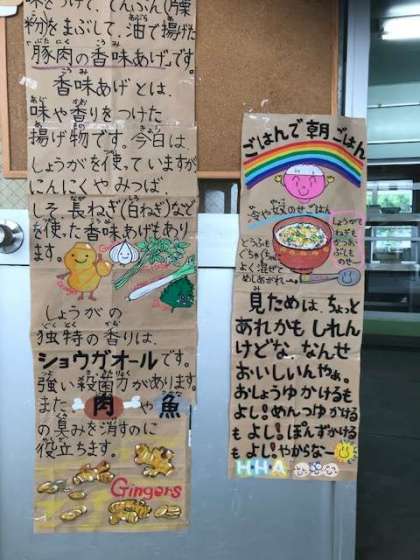 味をつけて、でんぷん
粉をまぶして、油で揚げた
豚肉の香味あげです。
香味あげとは、
味や香りをつけた
揚げ物です。今日は
しょうがを使っていますが
にんにくやみつば、
しそ、長ねぎ(白ねぎ)など
を使った香味あげもあり
ます。
しょうがの
独特の香りは、
ショウガオールです。
強い殺菌力があります。
また肉や魚
の臭みを消すのに
役立ちます。
Gingers
ごはんで朝ごはん
のせごはん
しょうがも
ねぎも
かつお
ぶしも
のせ
とうふを
ぐちゃぐちゃ
よく混ぜて
めしあがれ〜
見ためは、ちょっと
あれかも しれん
けどな なんせ
おいしいんやぁ。
おしょうゆかけるも
よし!めんつゆかける
もよし!ぽんずかける
もよし!やからなー
H.H.A